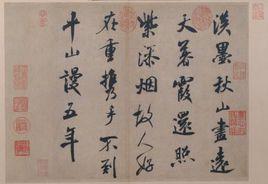 淡墨秋山盡遠
天暮霞還照
紫添烟故人好
在重攜手不到
平山謾五年